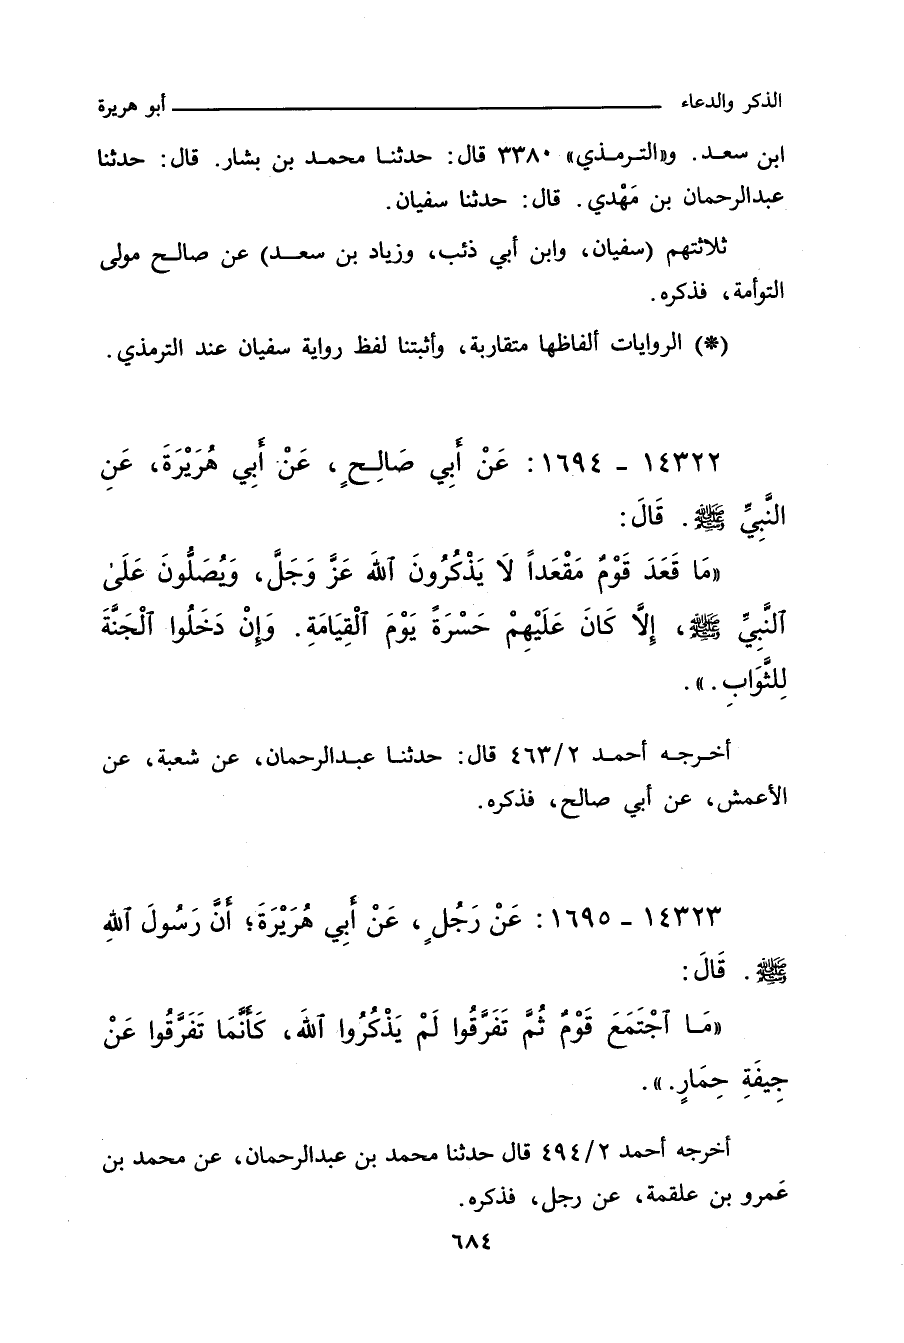 الذكر والدعاء أبو هريرة
ابن سعد. و«الترمذي» ٣٣٨٠ قال: حدثنا محمد بن بشار. قال: حدثنا
عبدالرحمان بن مَهْدي. قال: حدثنا سفيان.
ثلاثتهم (سفيان، وابن أبي ذئب، وزياد بن سعد) عن صالح مولى
التوأمة، فذكره.
(*) الروايات ألفاظها متقاربة، وأثبتنا لفظ رواية سفيان عند الترمذي.
١٤٣٢٢ - ١٦٩٤: عَنْ أَبِي صَالِحٍ، عَنْ أَبِي هُرَيْرَةَ، عَنِ
النَّبِيِّ ﷺ. قَالَ:
«مَا قَعَدَ قَوْمٌ مَقْعَداً لَا يَذْكُرُونَ ٱللهَ عَزَّ وَجَلَّ، وَيُصَلُّونَ عَلَىٰ
ٱلنَّبِيِّ ﷺ، إِلَّا كَانَ عَلَيْهِمْ حَسْرَةً يَوْمَ ٱلْقِيَامَةِ. وَإِنْ دَخَلُوا ٱلْجَنَّةَ
لِلثَّوَابِ.».
أخرجه أحمد ٤٦٣/٢ قال: حدثنا عبدالرحمان، عن شعبة، عن
الأعمش، عن أبي صالح، فذكره.
١٤٣٢٣ - ١٦٩٥: عَنْ رَجُلٍ، عَنْ أَبِي هُرَيْرَةَ؛ أَنَّ رَسُولَ ٱللهِ
ﷺ. قَالَ:
«مَا ٱجْتَمَعَ قَوْمٌ ثُمَّ تَفَرَّقُوا لَمْ يَذْكُرُوا ٱللهَ، كَأَنَّمَا تَفَرَّقُوا عَنْ
جِيفَةِ حِمَارٍ.».
أخرجه أحمد ٤٩٤/٢ قال حدثنا محمد بن عبدالرحمان، عن محمد بن
عَمرو بن علقمة، عن رجل، فذكره.
٦٨٤